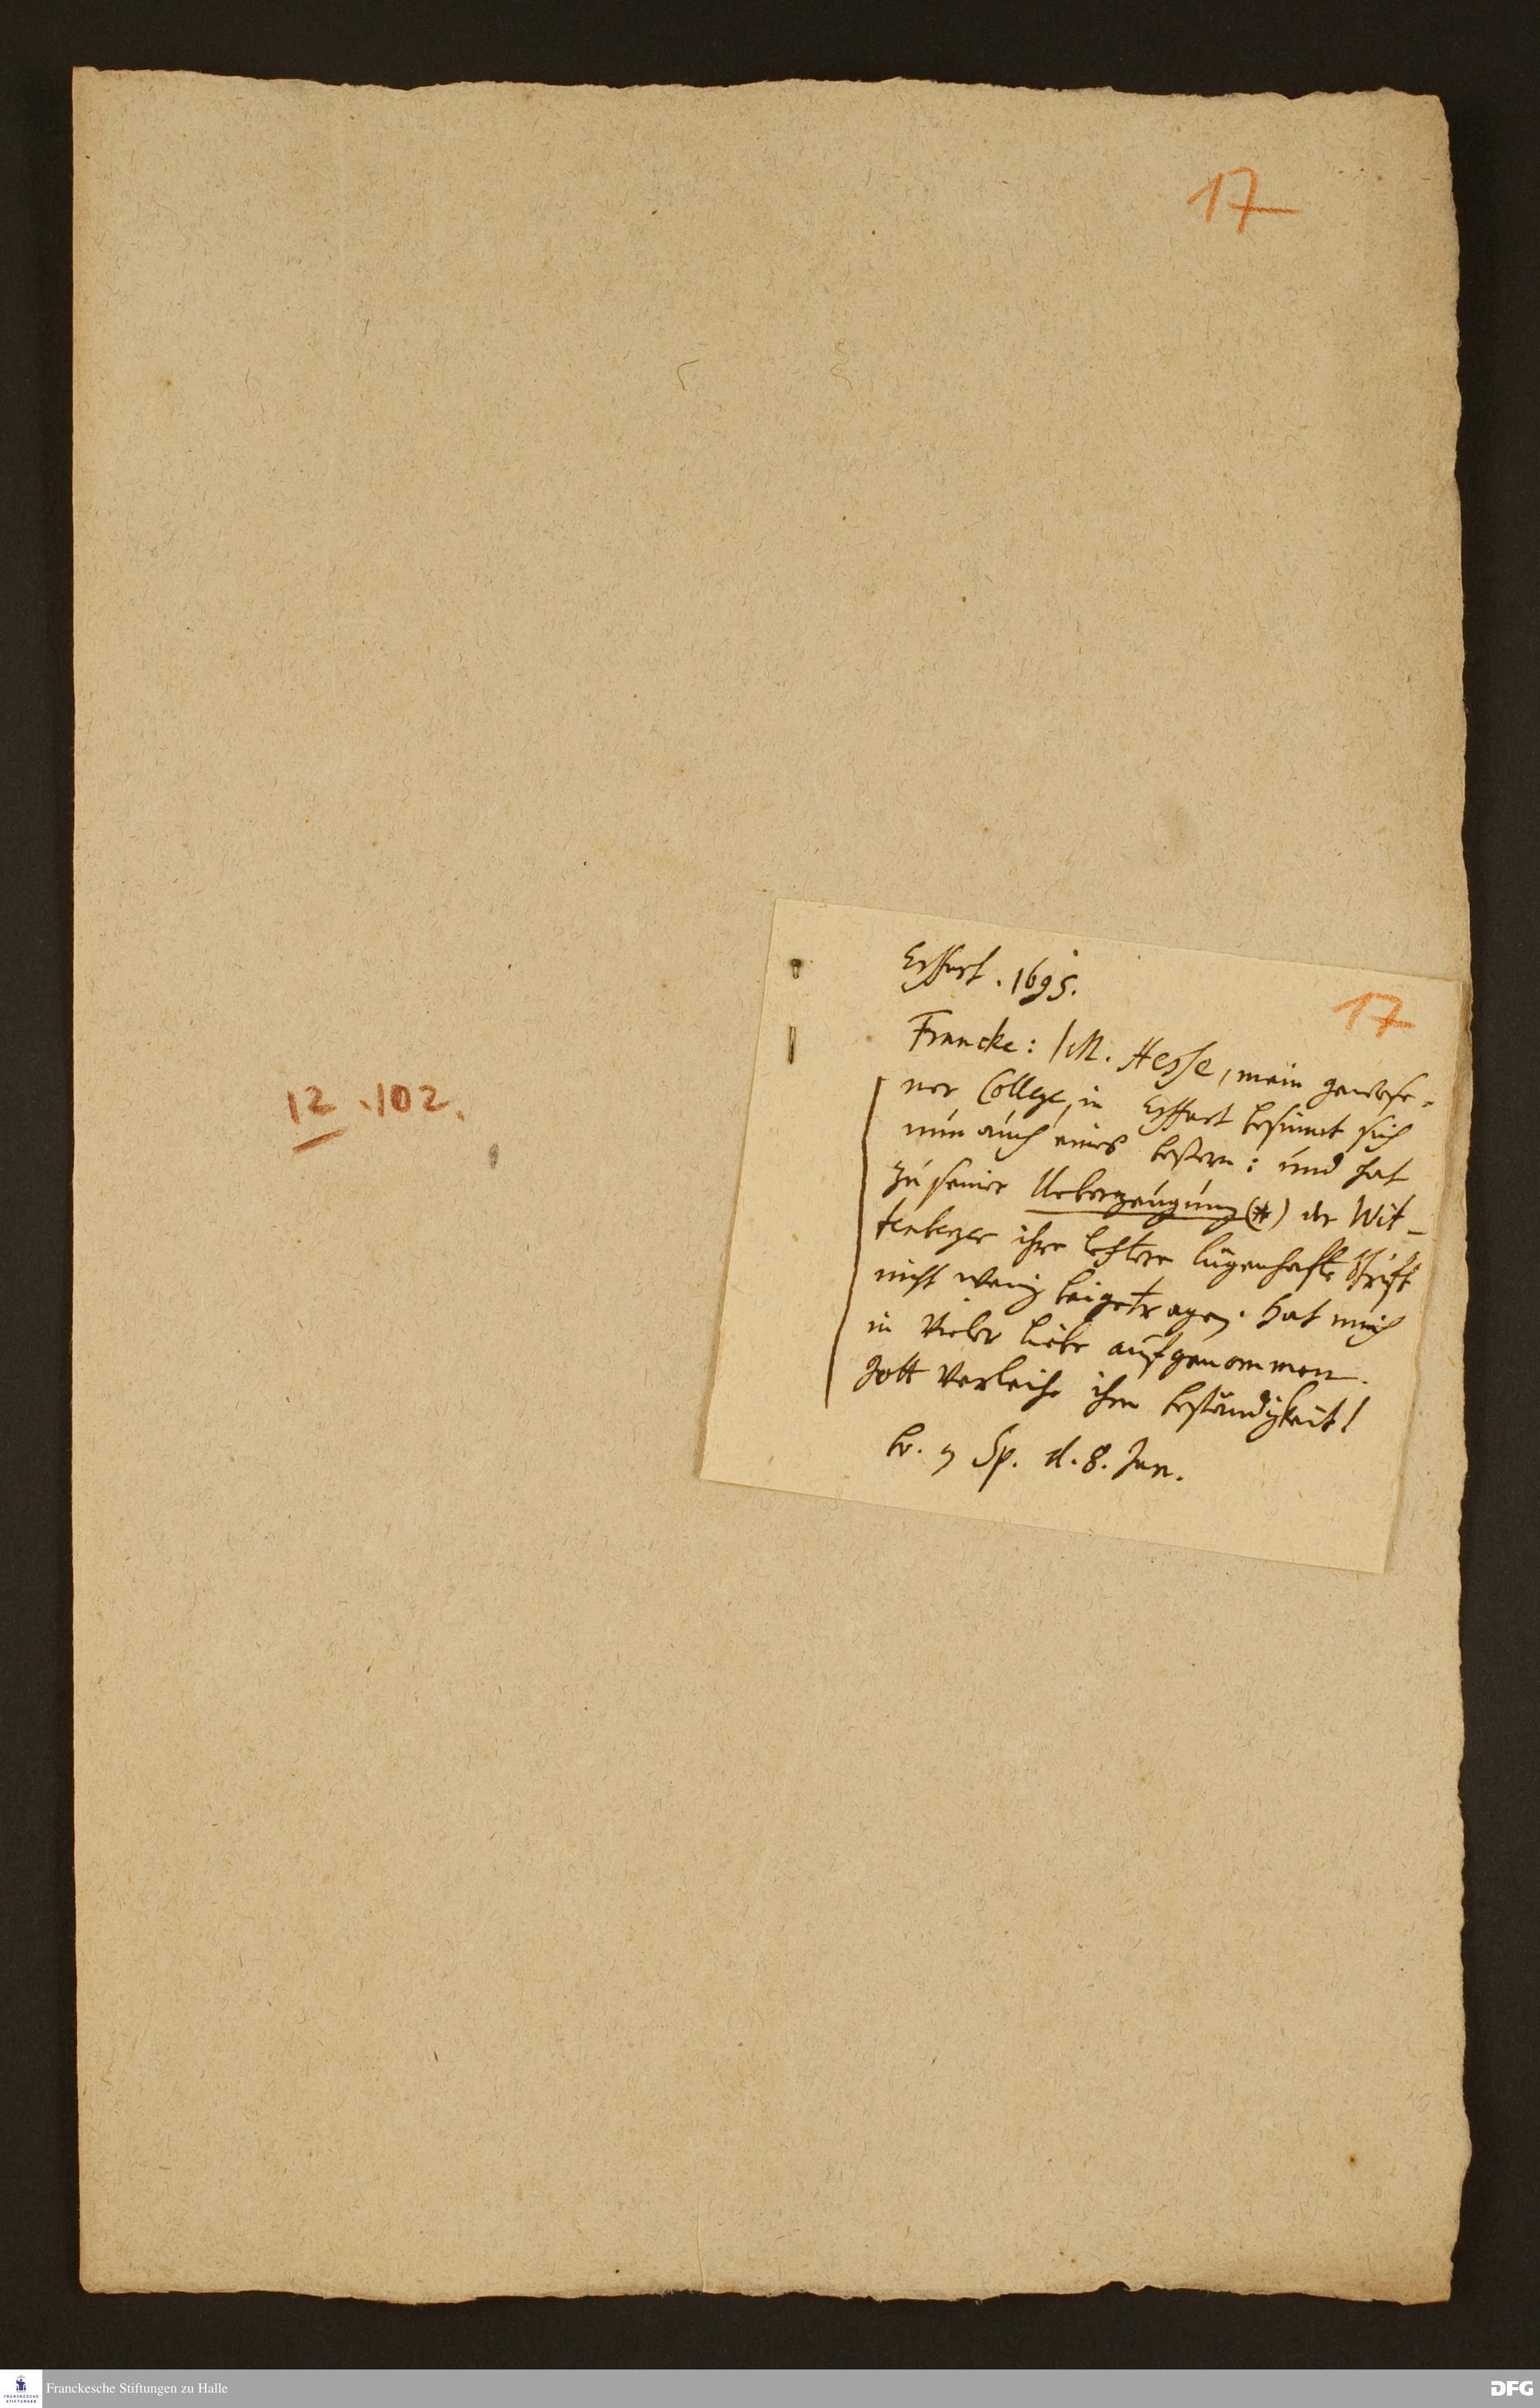 17
12.102.
17
Erffurt. 1695.
Francke: /M. Hesse, mein gewese-
ner College, in Erffurt besinnt sich
nun auch eines bessern: und hat
zu seiner Ueberzeugung (*) der Wit-
tenberger ihre letztere lügenhafte Schrift
nicht wenig beigetragen. hat mich
in vieler Liebe aufgenommen.
Gott verleihe ihm beständigkeit!
br. Sp. d. 8. Jan.
Franckesche Stiftungen zu Halle
FRANCKESCHE
STIFTUNGEN
DFG